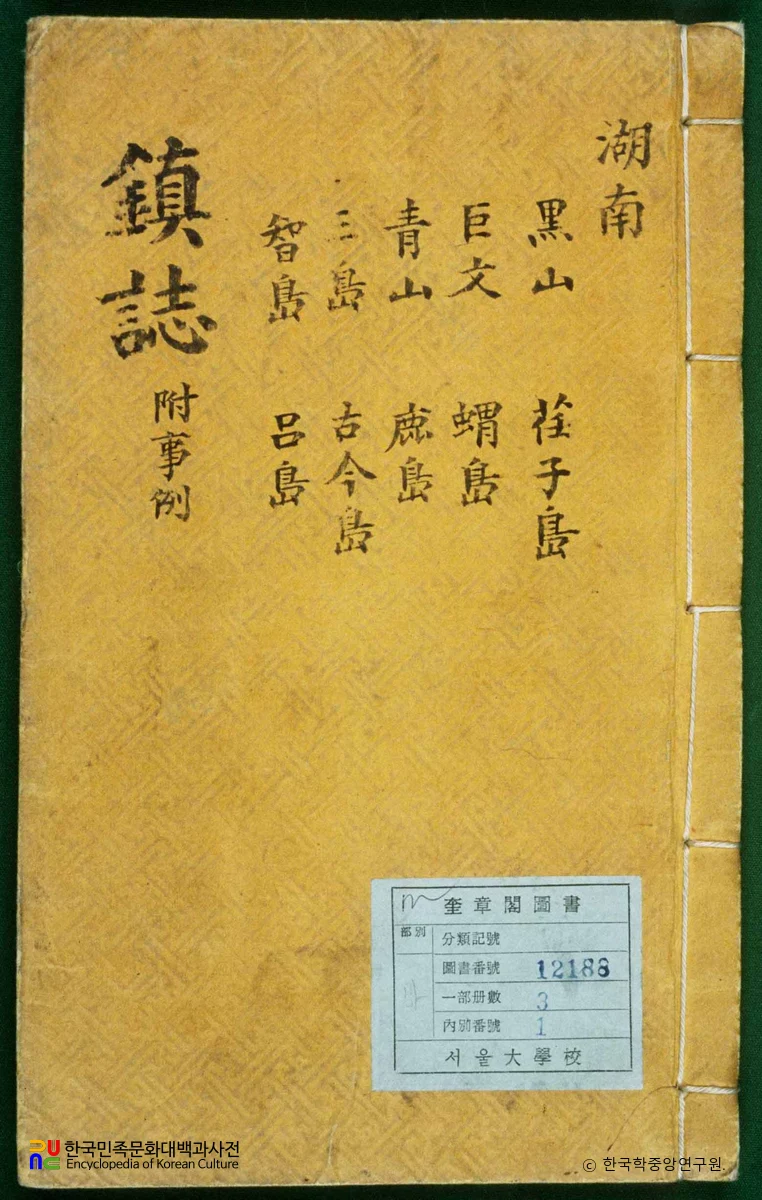 湖南
黑山 荏子島
巨文 蝟島
青山 鹿島
三島 古今島
智島 呂島
鎮誌 附事例
奎章閣圖書
部別
分類記號
圖書番號 12188
一部册數 3
內別番號 1
서울大學校
한국민족문화대백과사전
Encyclopedia of Korean Culture
© 한국학중앙연구원